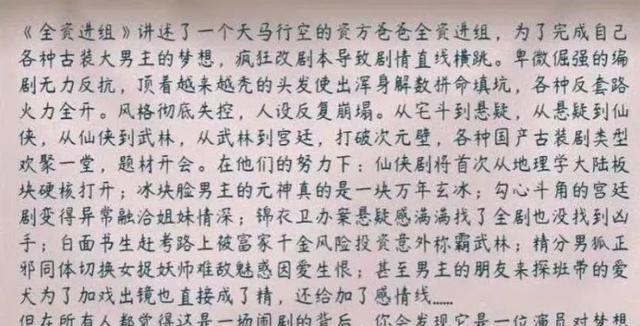 《全资进组》讲述了一个天马行空的资方爸爸全资进组，为了完成自己
各种古装大男主的梦想，疯狂改剧本导致剧情直线横跳。卑微倔强的编
剧无力反抗，顶着越来越秃的头发使出浑身解数拼命填坑，各种反套路
火力全开。风格彻底失控，人设反复崩塌。从宅斗到悬疑，从悬疑到仙
侠，从仙侠到武林，从武林到宫廷，打破次元壁，各种国产古装剧类型
欢聚一堂，题材开会。在他们的努力下：仙侠剧将首次从地理学大陆板
块硬核打开；冰块脸男主的元神真的是一块万年玄冰；勾心斗角的宫廷
剧变得异常融洽姐妹情深；锦衣卫办案悬疑感满满找了全剧也没找到凶
手；白面书生赶考路上被富家千金风险投资意外称霸武林；精分男狐正
邪同体切换女捉妖师难敌魅惑因爱生恨；甚至男主的朋友来探班带的爱
犬为了加戏出镜也直接成了精，还给加了感情线……
但在所有人都觉得这是一场闹剧的背后，你会发现它是一位演员对梦想